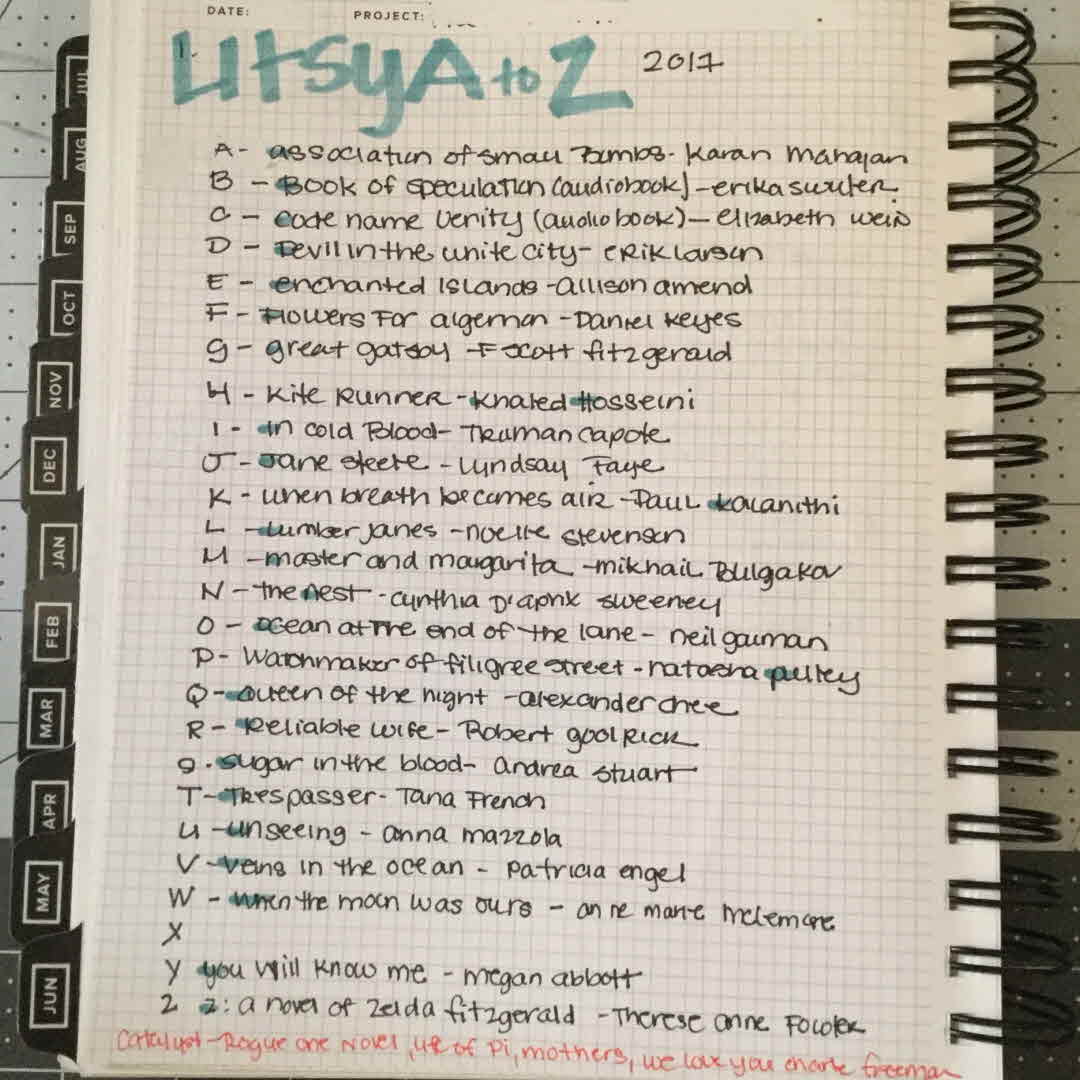 DATE: PROJECT:
LitsyAtoZ 2017
A - association of small Bombs - Karan Mahajan
B - Book of speculation (audiobook) - erika swyler
C - Code name Verity (audiobook) - elizabeth wein
D - Devil in the white city - ERik larson
E - enchanted Islands - allison amend
F - Flowers For algernon - Daniel Keyes
g - great gatsby - F scott fitzgerald
H - Kite Runner - Khaled Hosseini
I - In cold Blood - Truman Capote
J - Jane steele - Lyndsay Faye
K - When breath becomes air - Paul kalanithi
L - Lumberjanes - noelle stevenson
M - master and margarita - mikhail Bulgakov
N - the nest - cynthia D'aprix sweeney
O - Ocean at the end of the lane - neil gaiman
P - Watchmaker of filigree street - natasha pulley
Q - Queen of the night - alexander chee
R - Reliable wife - Robert goolRick
S. sugar in the blood - andrea stuart
T - Trespasser - Tana French
U - unseeing - anna mazzola
V - veins in the ocean - Patricia engel
W - when the moon was ours - anne marie mclemore
X
Y you will know me - megan abbott
Z z: a novel of Zelda fitzgerald - Therese anne Fowler
Catalyst - Rogue one Novel, life of Pi, mothers, we love you charlie freeman
JUL
AUG
SEP
OCT
NOV
DEC
JAN
FEB
MAR
APR
MAY
JUN